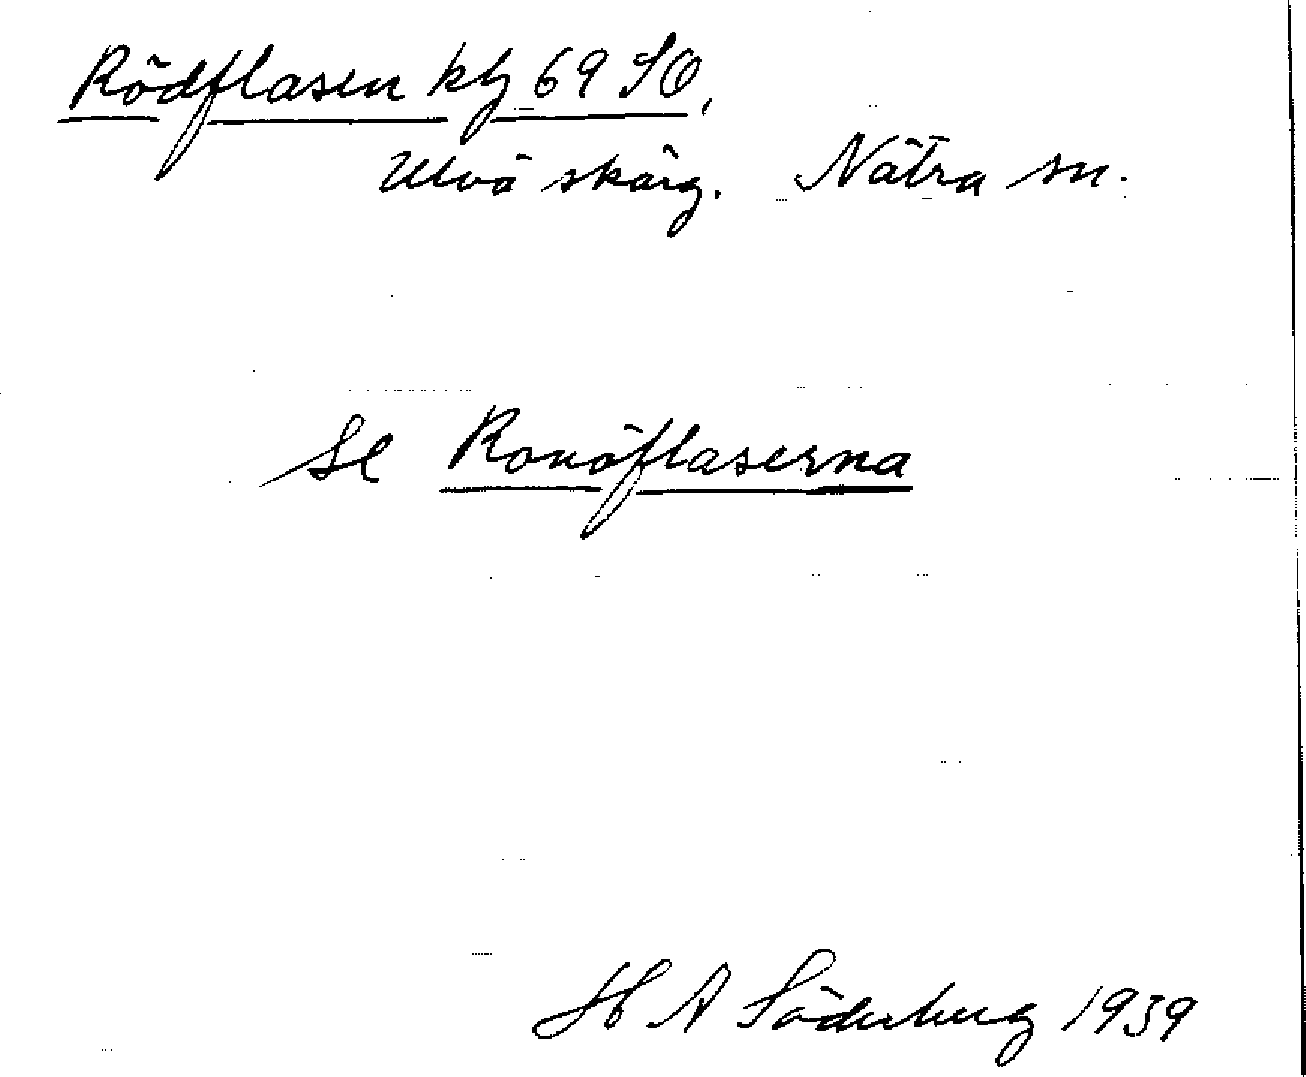 Rödflasen klj 69 SO,
Ulvö skärg. Nätra sn.
Se Ronöflaserna
H A Söderberg 1939